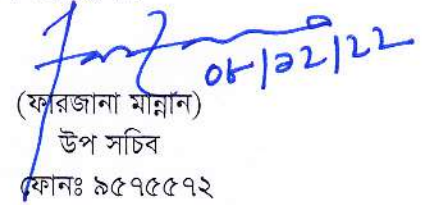 ০৮/১২/২২
(ফারজানা মান্নান)
উপ সচিব
ফোনঃ ৯৫৭৫৫৭২